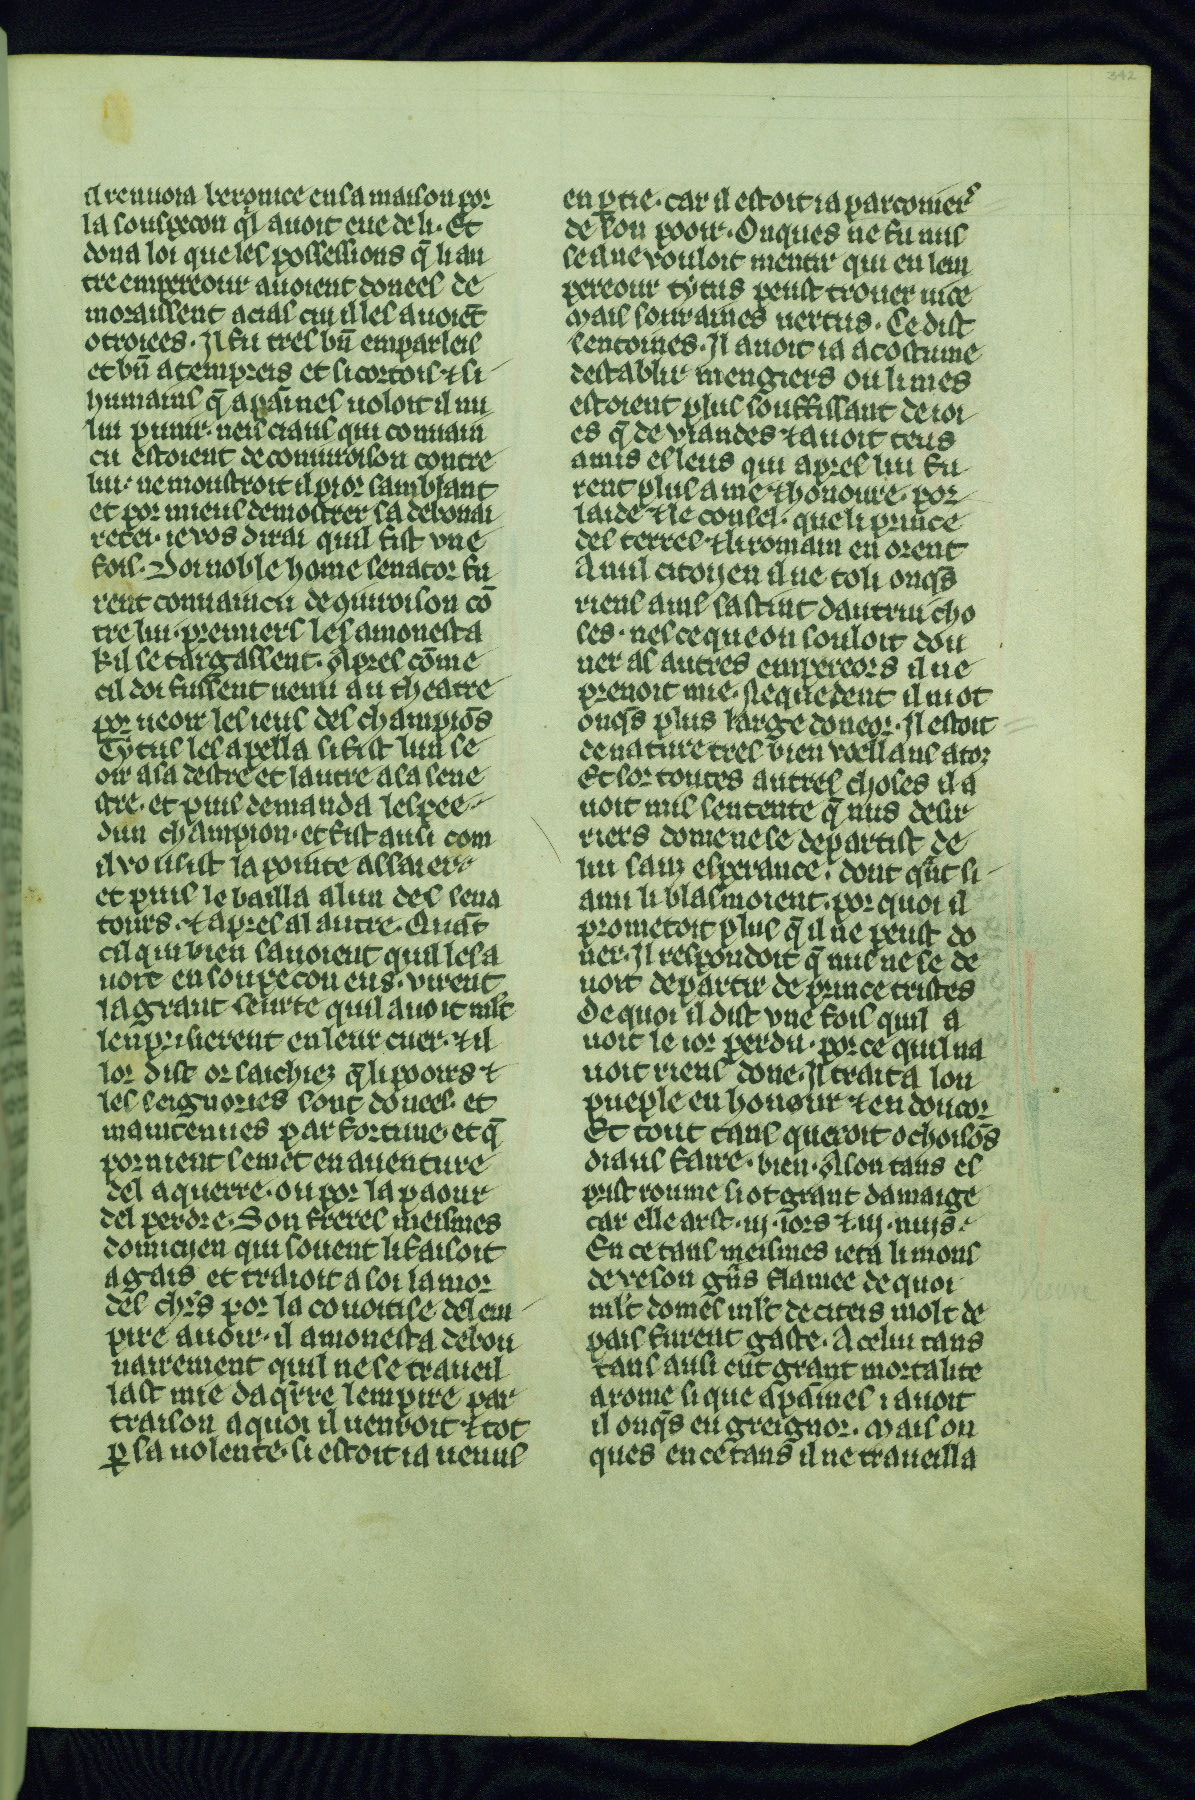 342
il renuoia beronice en sa maison por
la souspecon ql auoit eue de li. Et
dona loi que les possessions q̄ li au
tre empereour auoient donees de
moraissent a cials cui il les auoiēt
otroiees. Il fu tres bn̄ emparleis
et bn̄ atempreis et si cortois ⁊ si
humains q̄ a paīnes uoloit il nu
lui punir. neis ciaus qui conuain
cu estoient de coniuroison contre
lui. ne moustroit il pior samblant
et por mieus demostrer sa debonai
retei. ie vos dirai quil fist vne
fois. Doi noble home senator fu
rent conuaincu de quiroison cō
tre lui. premiers les amonesta
kil se targassent. Apres cōme
cil doi fussent uenu au theatre
por ueoir les ieus des champiōs
Tytus les apella si fist lun se
oir a sa destre et lautre a sa sene
stre. et puis demanda lespee
dun champion. et fist ausi com
il vousist la pointe assaier.
et puis le bailla a lun des sena
tours. ⁊ apres al autre. Quāt
cil qui bien sauoient quil les a
uoit en soupecon eus. virent
la grant seurte quil auoit ml't
len prisierent en leur cuer. ⁊ il
lor dist or saichiez q̄ li pooirs ⁊
les seignories sont donees. et
maintenues par fortune. et q̄
por nient se met en auenture
del aquerre. ou por la paour
del perdre. Son freres meismes
domicyen qui souent li faisoit
agais et traioit a soi la mor
des chrs por la couoitise del em
pire auoir. il amonesta debon
nairement quil ne se traueil
last mie daq̄rre lempire par
traison a quoi il uenroit ⁊ tot
ꝑ sa uolente. si estoit ia uenus
en ꝑtie. car il estoit ia parconier's
de son pooir. Onques ne fu nus
se il ne vouloit mentir qui en lem
pereour tytus peust trouer uice
Mais souraines uertus. Ce dist
sentoines. Il auoit ia acostume
destablir mengiers ou li mes
estoient plus souffissant de ioi
es q̄ de viandes ⁊ auoit teus
amis esleus qui apres lui fu
rent plus ame ⁊ honoure. por
laide ⁊ le consel. que li prince
des terres ⁊ li romain en orent
A nul citoyen il ne toli onqs̄
riens ains sastint dautrui cho
ses. nes ce que on souloit don
ner as autres empereors il ne
prenoit mie. Ne quedent il niot
onqs̄ plus large doneor. Il estoit
de nature tres bien voellans a toz
Et sor toutes autres choses il a
uoit mis sentente q̄ nus desir
riers dome ne se departist de
lui sanz esperance. dont qn̄t si
ami li blasmoient. por quoi il
prometoit plus q̄ il ne peust do
ner. Il respondoit q̄ nus ne se de
uoit departir de prince tristes
De quoi il dist vne fois quil a
uoit le ior perdu. por ce quil na
uoit riens done. Il traita son
pueple en honour ⁊ en doucor
Et tout tans queroit ochoisōs
diaus faire. bien. A son tans es
prist roume si ot grant damaige
car elle arst .iij. iors ⁊ .iij. nuis.
En ce tans meismes ieta li mons
de veson gn̄s flamee de quoi
ml't domes ml't de citeis molt de
pais furent gaste. A celui tans
tans ausi eut grant mortalite
a rome si que a paīnes i auoit
il onqs̄ eu greignor. Mais on
ques en ce tans il ne traueilla